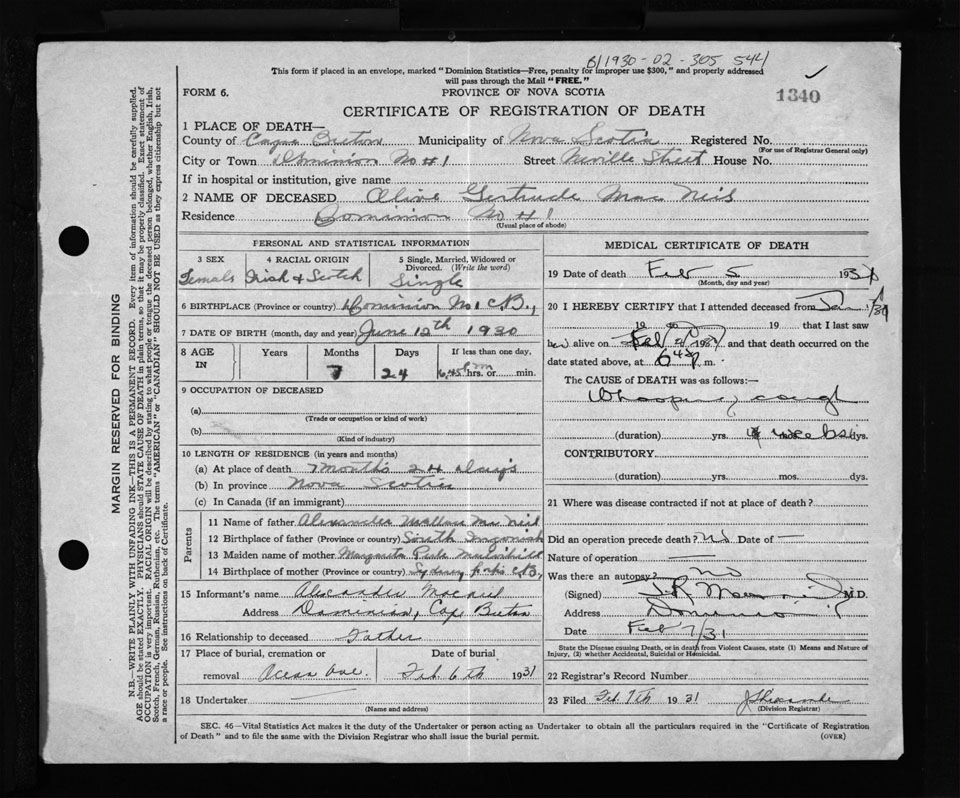 B/1930-02-305 544
This form if placed in an envelope, marked "Dominion Statistics—Free, penalty for improper use $300," and properly addressed
will pass through the Mail "FREE."
FORM 6.
PROVINCE OF NOVA SCOTIA
1340
CERTIFICATE OF REGISTRATION OF DEATH
1 PLACE OF DEATH—
County of Cape Breton Municipality of Nova Scotia Registered No.
(For use of Registrar General only)
City or Town Dominion No #1 Street Neville Street House No.
If in hospital or institution, give name
2 NAME OF DECEASED Olive Gertrude Mac Neil
Residence Dominion No #1
(Usual place of abode)
PERSONAL AND STATISTICAL INFORMATION
3 SEX
Female
4 RACIAL ORIGIN
Irish & Scotch
5 Single, Married, Widowed or
Divorced. (Write the word)
Single
6 BIRTHPLACE (Province or country) Dominion No 1 C.B.,
7 DATE OF BIRTH (month, day and year) June 12th 1930
8 AGE
IN
Years
Months
7
Days
24
If less than one day,
6.45 hrs. or min.
9 OCCUPATION OF DECEASED
(a)
(Trade or occupation or kind of work)
(b)
(Kind of industry)
10 LENGTH OF RESIDENCE (in years and months)
(a) At place of death 7 months 24 days
(b) In province Nova Scotia
(c) In Canada (if an immigrant)
Parents
11 Name of father Alexander Mac Neil
12 Birthplace of father (Province or country) South Ingonish
13 Maiden name of mother
14 Birthplace of mother (Province or country) Sydney C.B.,
15 Informant's name Alexander Macneil
Address Dominion, Cape Breton
16 Relationship to deceased Father
17 Place of burial, cremation or
removal Ocean Ave.
Date of burial
Feb. 6th 1931
18 Undertaker
(Name and address)
MEDICAL CERTIFICATE OF DEATH
19 Date of death Feb 5 1931
(Month, day and year)
20 I HEREBY CERTIFY that I attended deceased from
19 to 19 that I last saw
her alive on Feb 1931 and that death occurred on the
date stated above, at 6 45 p m.
The CAUSE of DEATH was as follows:—
Whooping cough
(duration) yrs. 4 weeks dys.
CONTRIBUTORY
(duration) yrs. mos. dys.
21 Where was disease contracted if not at place of death?
Did an operation precede death? No Date of —
Nature of operation —
Was there an autopsy? no
(Signed) M.D.
Address Dominion
Date Feb 7/31
State the Disease causing Death, or in death from Violent Causes, state (1) Means and Nature of
Injury, (2) whether Accidental, Suicidal or Homicidal.
22 Registrar's Record Number
23 Filed Feb. 7th 1931
(Division Registrar)
SEC. 46—Vital Statistics Act makes it the duty of the Undertaker or person acting as Undertaker to obtain all the particulars required in the "Certificate of Registration
of Death" and to file the same with the Division Registrar who shall issue the burial permit.
(OVER)
MARGIN RESERVED FOR BINDING
N.B.—WRITE PLAINLY WITH UNFADING INK—THIS IS A PERMANENT RECORD. Every item of information should be carefully supplied.
AGE should be stated EXACTLY. PHYSICIANS should STATE CAUSE OF DEATH in plain terms, so that it may be properly classified. Exact statement of
OCCUPATION is very important. RACIAL ORIGIN will be described by stating to what people or tongue the deceased person belonged, whether English, Irish,
Scotch, French, German, Russian, Ruthenian, etc. The terms "AMERICAN" or "CANADIAN" SHOULD NOT BE USED as they express citizenship but not
a race or people. See instructions on back of Certificate.